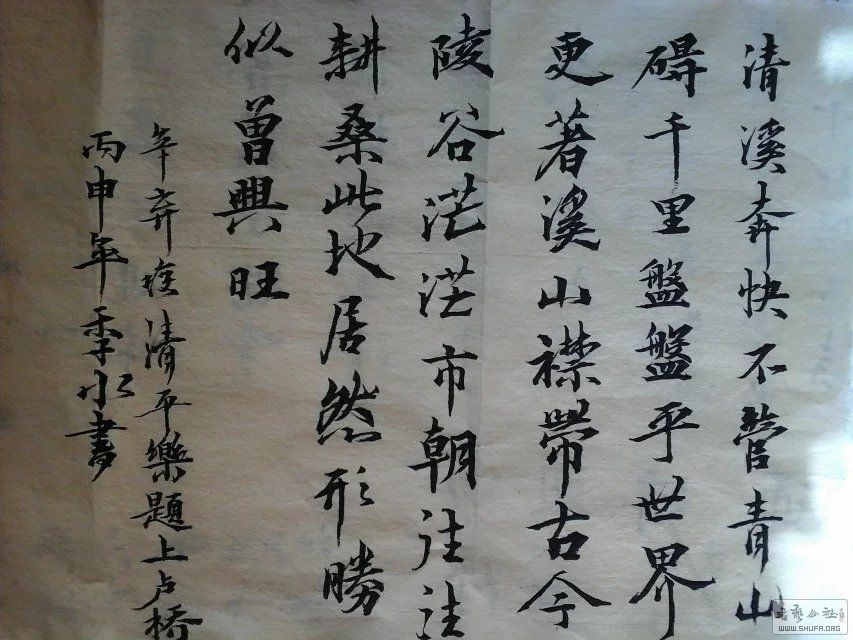 清溪奔快不管青山
碍千里盤盤平世界
更著溪山襟帶古今
陵谷茫茫市朝往往
耕桑此地居然形勝
似曾興旺
辛弃疾清平樂題上卢橋
丙申年季水書
WWW.SHUFA.ORG